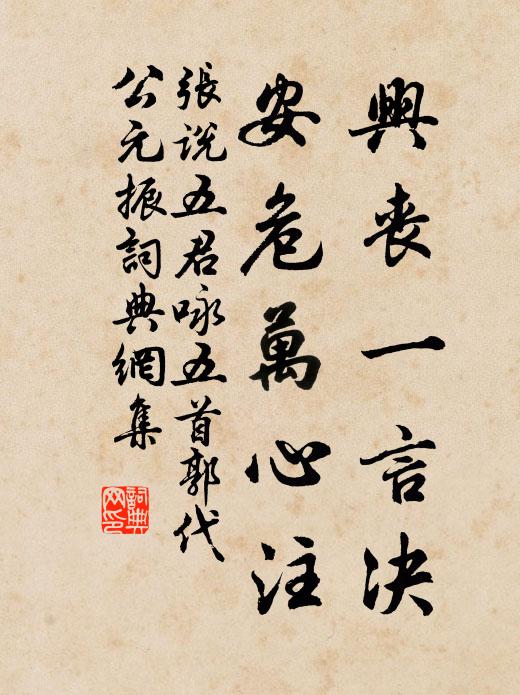 興喪一言決
安危萬心注
張說五君咏五首郭代
公元振詞典網集
詞典
网印